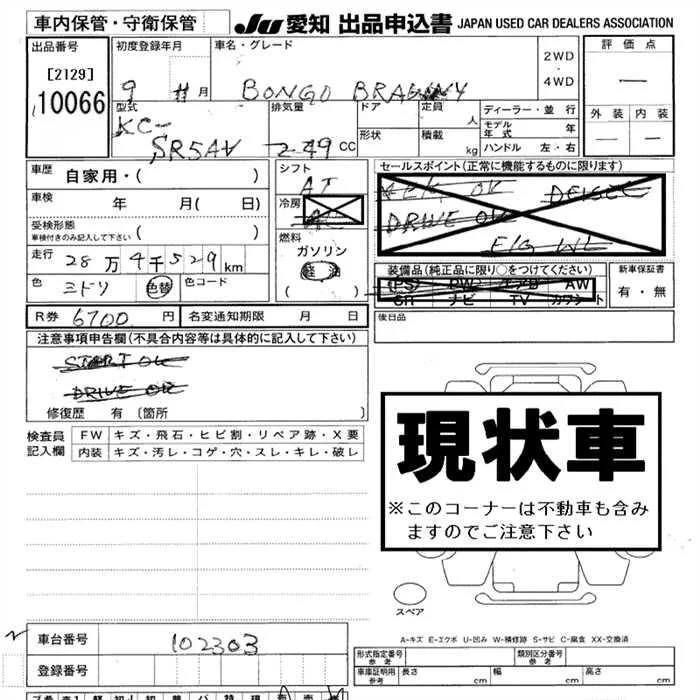 車内保管・守衛保管
JU 愛知 出品申込書 JAPAN USED CAR DEALERS ASSOCIATION
出品番号
[2129]
10066
初度登録年月
9 月
車名・グレード
BONGO BRAWNY
2WD
・
4WD
評価点
外装 内装
型式
KC-
SR5AV
排気量
2.49 CC
ドア
定員
人
形状
積載
kg
ディーラー・並行
モデル年式 年
ハンドル 左・右
車歴 自家用・( )
車検 年 月( 日)
受検形態
車検付きのみ記入して下さい ( )
走行 28万4千529km
色 ミドリ 色替 色コード
シフト
AT
冷房
AC
燃料
ガソリン
軽
( )
セールスポイント(正常に機能するものに限ります)
DRIVE OK
装備品(純正品に限り○をつけてください)
PS PW AW
ナビ TV
新車保証書
有・無
R券 6700 円 名変通知期限 月 日
後日品
注意事項申告欄(不具合内容等は具体的に記入して下さい)
START OK
DRIVE OK
修復歴 有 〔箇所 〕
検査員
記入欄
FW キズ・飛石・ヒビ割・リペア跡・X要
内装 キズ・汚レ・コゲ・穴・スレ・キレ・破レ
現状車
※このコーナーは不動車も含み
ますのでご注意下さい
スペア
A-キズ E-エクボ U-凹み W-補修跡 S-サビ C-腐食 XX-交換済
車台番号 102303
登録番号
形式指定番号
参考
類別区分番号
参考
車庫証明用
参考
長さ cm 幅 cm 高さ cm